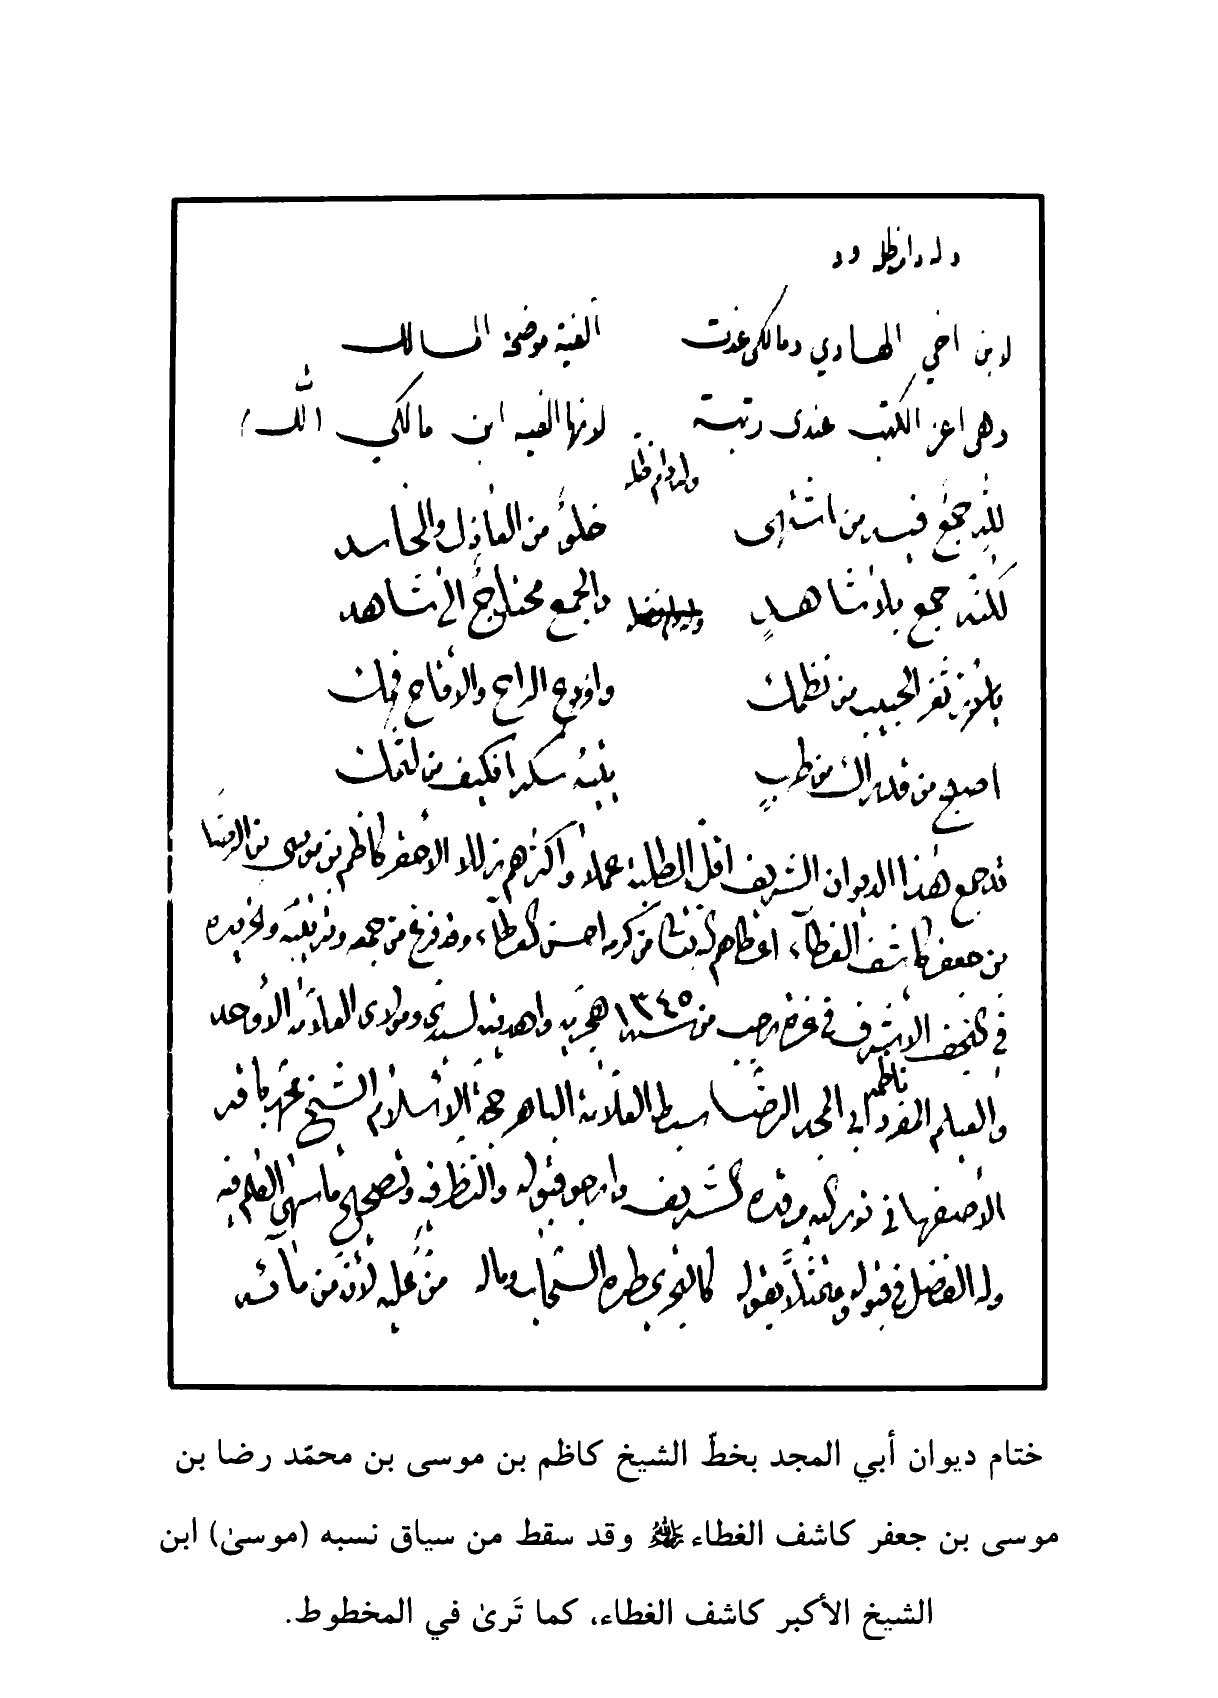 وله دام ظله
لابن اخي الهادي ومالكي غدت الفية موضحة المسالك
وهي اعز الكتب عندي رتبة لانها الفيه ابن مالكي
وله دام ظله
لله جمع فيه من اشتهي خلو من العاذل والحاسد
لكنه جمع بلا شاهد والجمع محتاج الى شاهد
ثغر الحبيب من نظمك واودع الراح والاقاح فمك
اصبح من قد راك من طرب يتيه سكرا فكيف من لثمك
قد جمع هذا الديوان الشريف اقل الطلبة عملا واكثرهم زللا الاحقر كاظم بن موسى بن الرضا
بن جعفر كاشف الغطاء اعطاهم الله من كرمه احسن العطاء وقد فرغ من جمعه وترتيبه وتحريره
في النجف الاشرف في غرة رجب من سنة ١٣٤٥ هجريه واهديته لسيدي ومولاي العلامة الاوحد
والعلم المفرد ناظمه ابي المجد الرضا سبط العلامة الباهر حجة الاسلام الشيخ محمد باقر
الاصفهاني نور الله مرقده الشريف وارجو قبوله والنظر فيه وتصحيح ما سهى القلم فيه
وله الفضل في قبوله ومتمثلا بقوله كالبحر يمطره السحاب وماله من عليه لان من مائه
ختام ديوان أبي المجد بخطّ الشيخ كاظم بن موسى بن محمّد رضا بن
موسى بن جعفر كاشف الغطاء وقد سقط من سياق نسبه (موسىٰ) ابن
الشيخ الأكبر كاشف الغطاء، كما تَرىٰ في المخطوط.